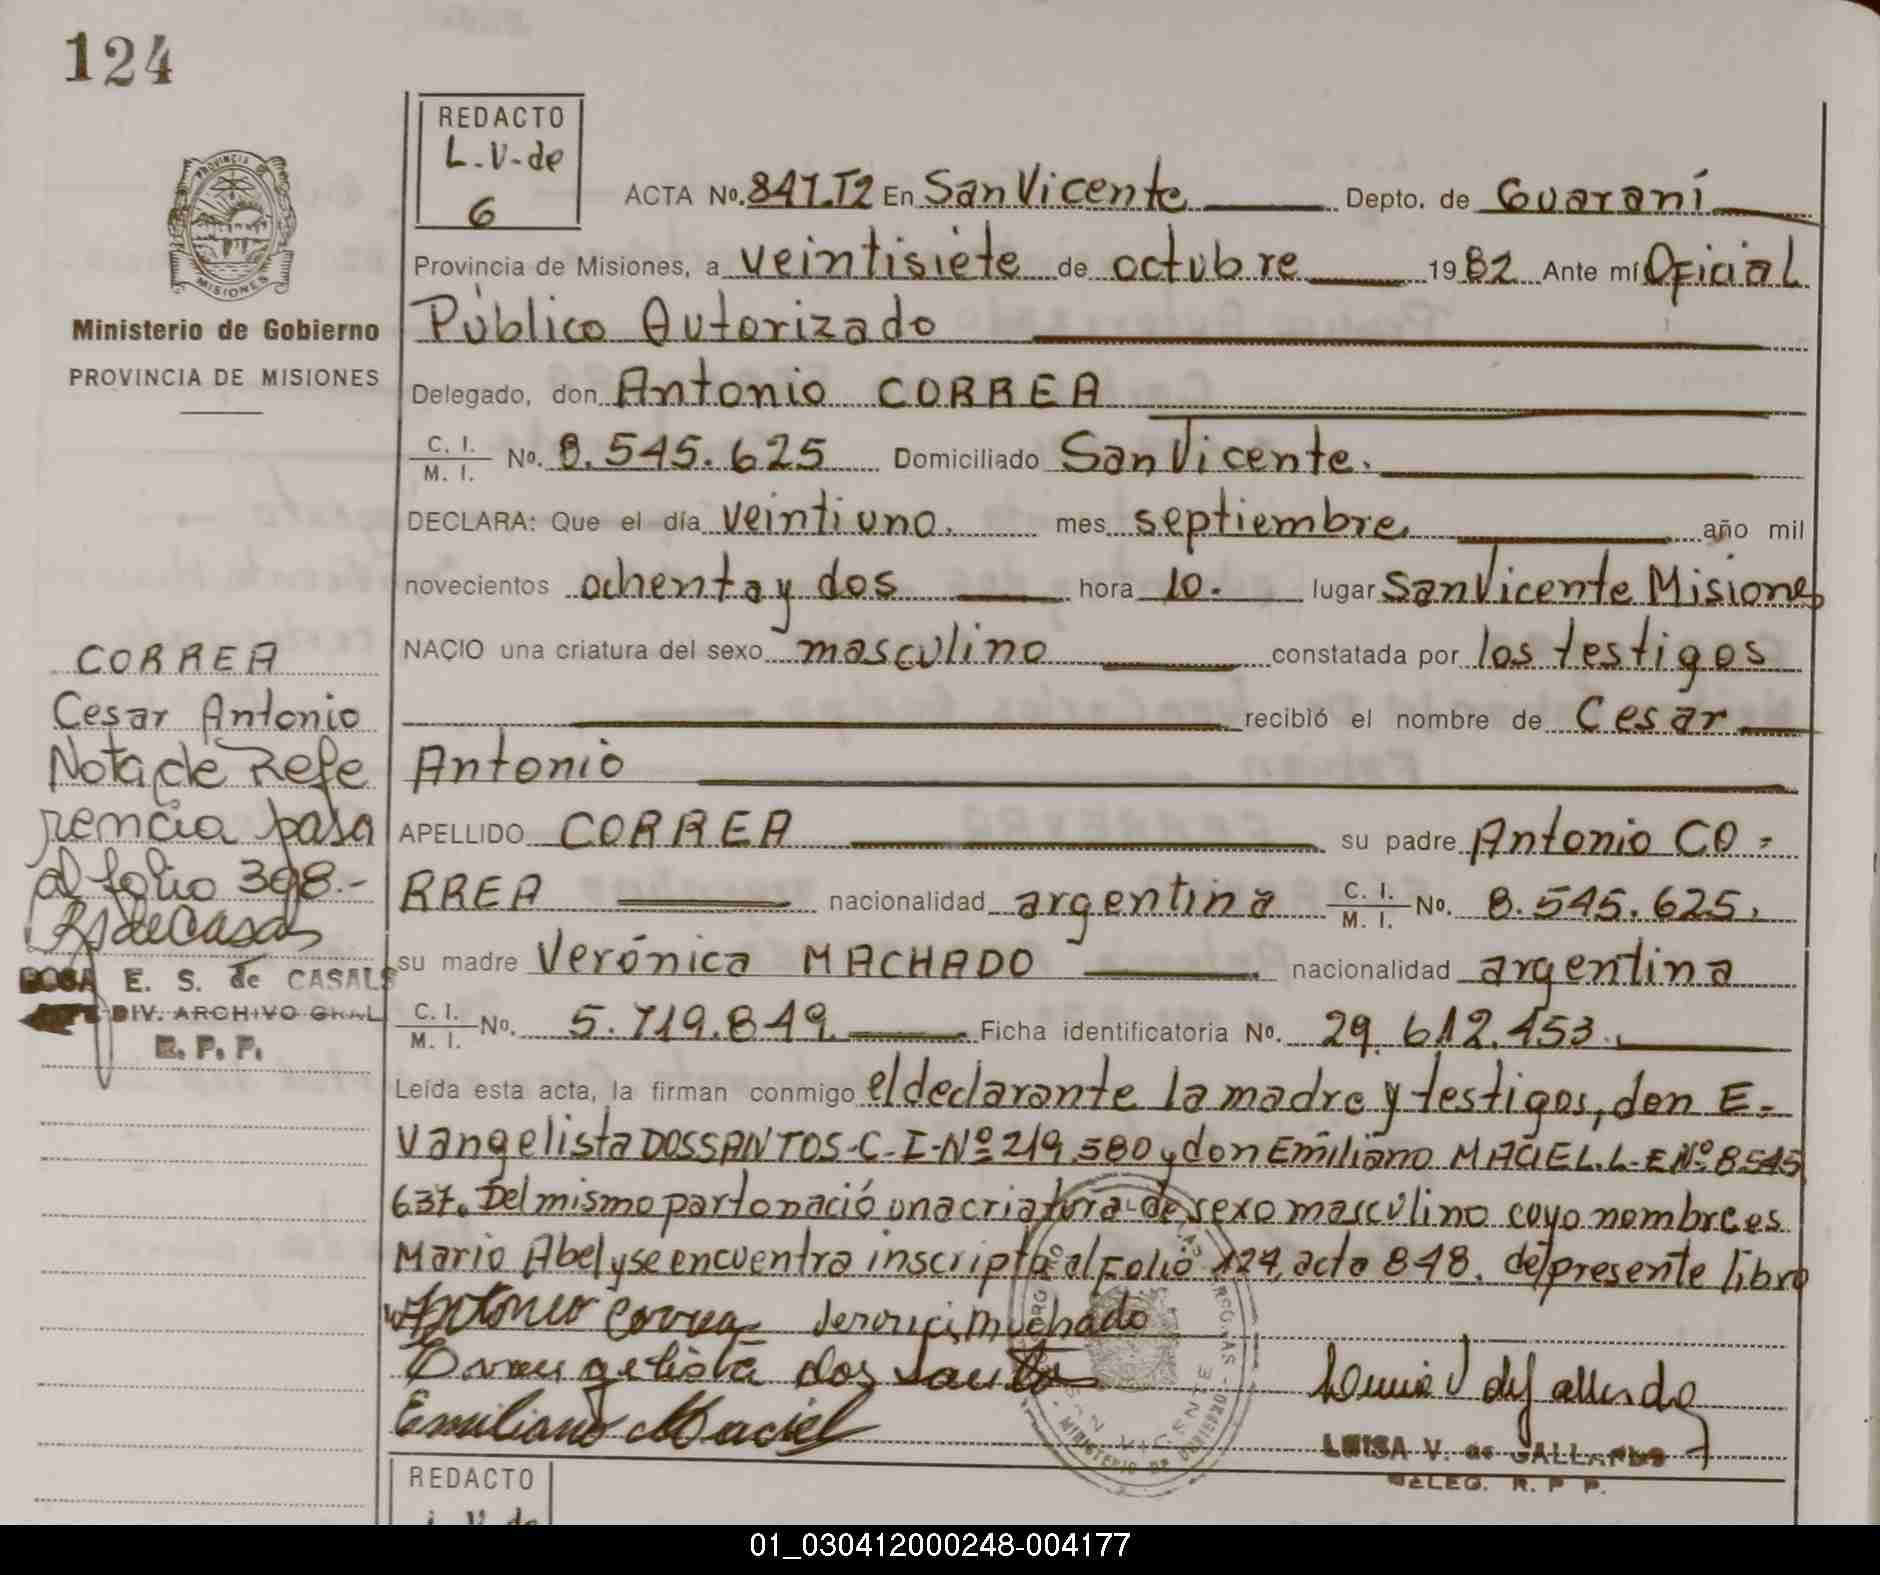 124
REDACTO
L.V. de
G
PROVINCIA
MISIONES
Ministerio de Gobierno
PROVINCIA DE MISIONES
ACTA Nº. 847.T2 En San Vicente Depto. de Guaraní
Provincia de Misiones, a veintisiete de octubre 1982 Ante mí Oficial
Público Autorizado
Delegado, don Antonio CORREA
C. I.
M. I. Nº. 8.545.625 Domiciliado San Vicente.
DECLARA: Que el día veintiuno. mes septiembre año mil
novecientos ochenta y dos hora 10. lugar San Vicente Misiones
NACIO una criatura del sexo masculino constatada por los testigos
recibió el nombre de Cesar
Antonio
APELLIDO CORREA su padre Antonio CO-
RREA nacionalidad argentina C. I.
M. I. Nº. 8.545.625.
su madre Verónica MACHADO nacionalidad argentina
C. I.
M. I. Nº. 5.719.849. Ficha identificatoria Nº. 29.612.453.
Leída esta acta, la firman conmigo el declarante la madre y testigos, don E-
vangelista DOSSANTOS-C-I-Nº 219.580 y don Emiliano MACIEL L-E Nº 8545
637. Del mismo parto nació una criatura de sexo masculino cuyo nombre es
Mario Abel y se encuentra inscripto al Folio 124, acta 848. del presente libro
Antonio Correa machado
Evangelista dos Santos
Emiliano Maciel
LUISA V. de GALLARDO
DELEG. R. P. P.
SAN VICENTE
MINISTERIO DE GOBIERNO
CORREA
Cesar Antonio
Nota de Refe
rencia pasa
al folio 398.-
RSdeCasals
ROSA E. S. de CASALS
JEFE DIV. ARCHIVO GRAL
R. P. P.
REDACTO
L.V. de
01_030412000248-004177